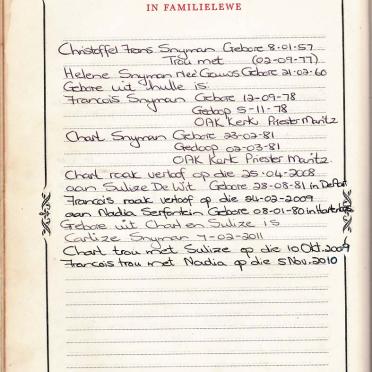 IN FAMILIELEWE
Christoffel Frans Snyman Gebore 8.01.57
Trou met (02-09-77)
Helene Snyman Neé Gouws Gebore 21.02.60
Gebore uit hulle is:
Francois Snyman Gebore 12-09-78
Gedoop 5-11-78
OAK Kerk Priester Maritz.
Charl Snyman Gebore 23-02-81
Gedoop 02-03-81
OAK Kerk Priester Maritz.
Charl raak verloof op die 25.04-2008
aan Sulize De Wit Gebore 28-08-81 in De Aar
Francois raak verloof op die 24-02-2009
aan Nadia Serfontein Gebore 08-01-80 in
Gebore uit Charl en Sulize is
Carlize Snyman 7-02-2011
Charl trou met Sulize op die 10 Okt. 2009
Francois trou met Nadia op die 5 Nov. 2010